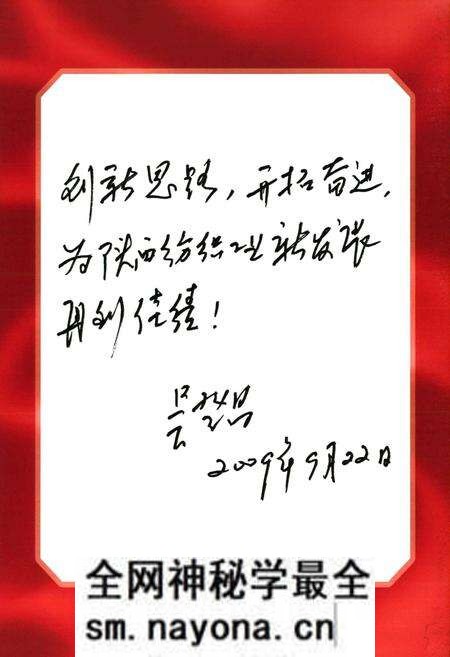 创新思路，开拓奋进，
为陕西纺织工业新发展
再创佳绩！
2009年9月22日
全网神秘学最全
sm.nayona.cn